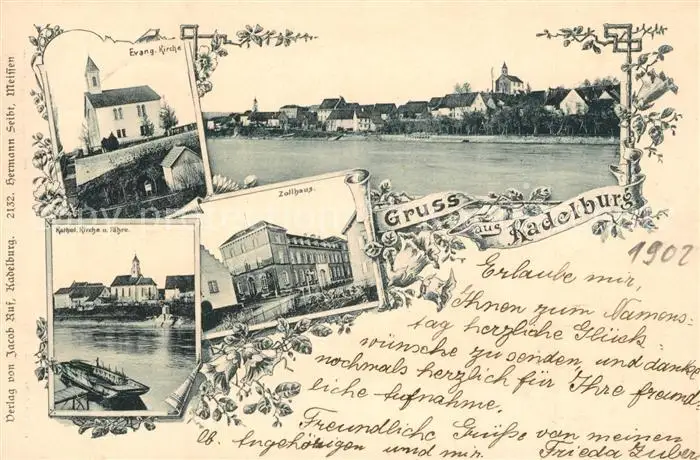 Verlag von Jacob Ruf, Kadelburg. 2132. Hermann Seibt, Meissen
Evang. Kirche
Zollhaus.
Kathol. Kirche u. Fähre.
Gruss
aus Kadelburg
1902
Erlaube mir,
Ihnen zum Namens-
tag herzliche Glück-
wünsche zu senden und danke
nochmals herzlich für Ihre freund-
liche Aufnahme.
Freundliche Grüße von meinen
lb. Angehörigen und mir. Frieda Huber